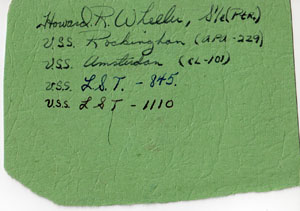 Howard R. Wheeler, S1/c (Per.)
U.S.S. Rockingham (APA-229)
U.S.S. Amsterdam (CL-101)
U.S.S. L.S.T. - 845.
U.S.S. L S T - 1110